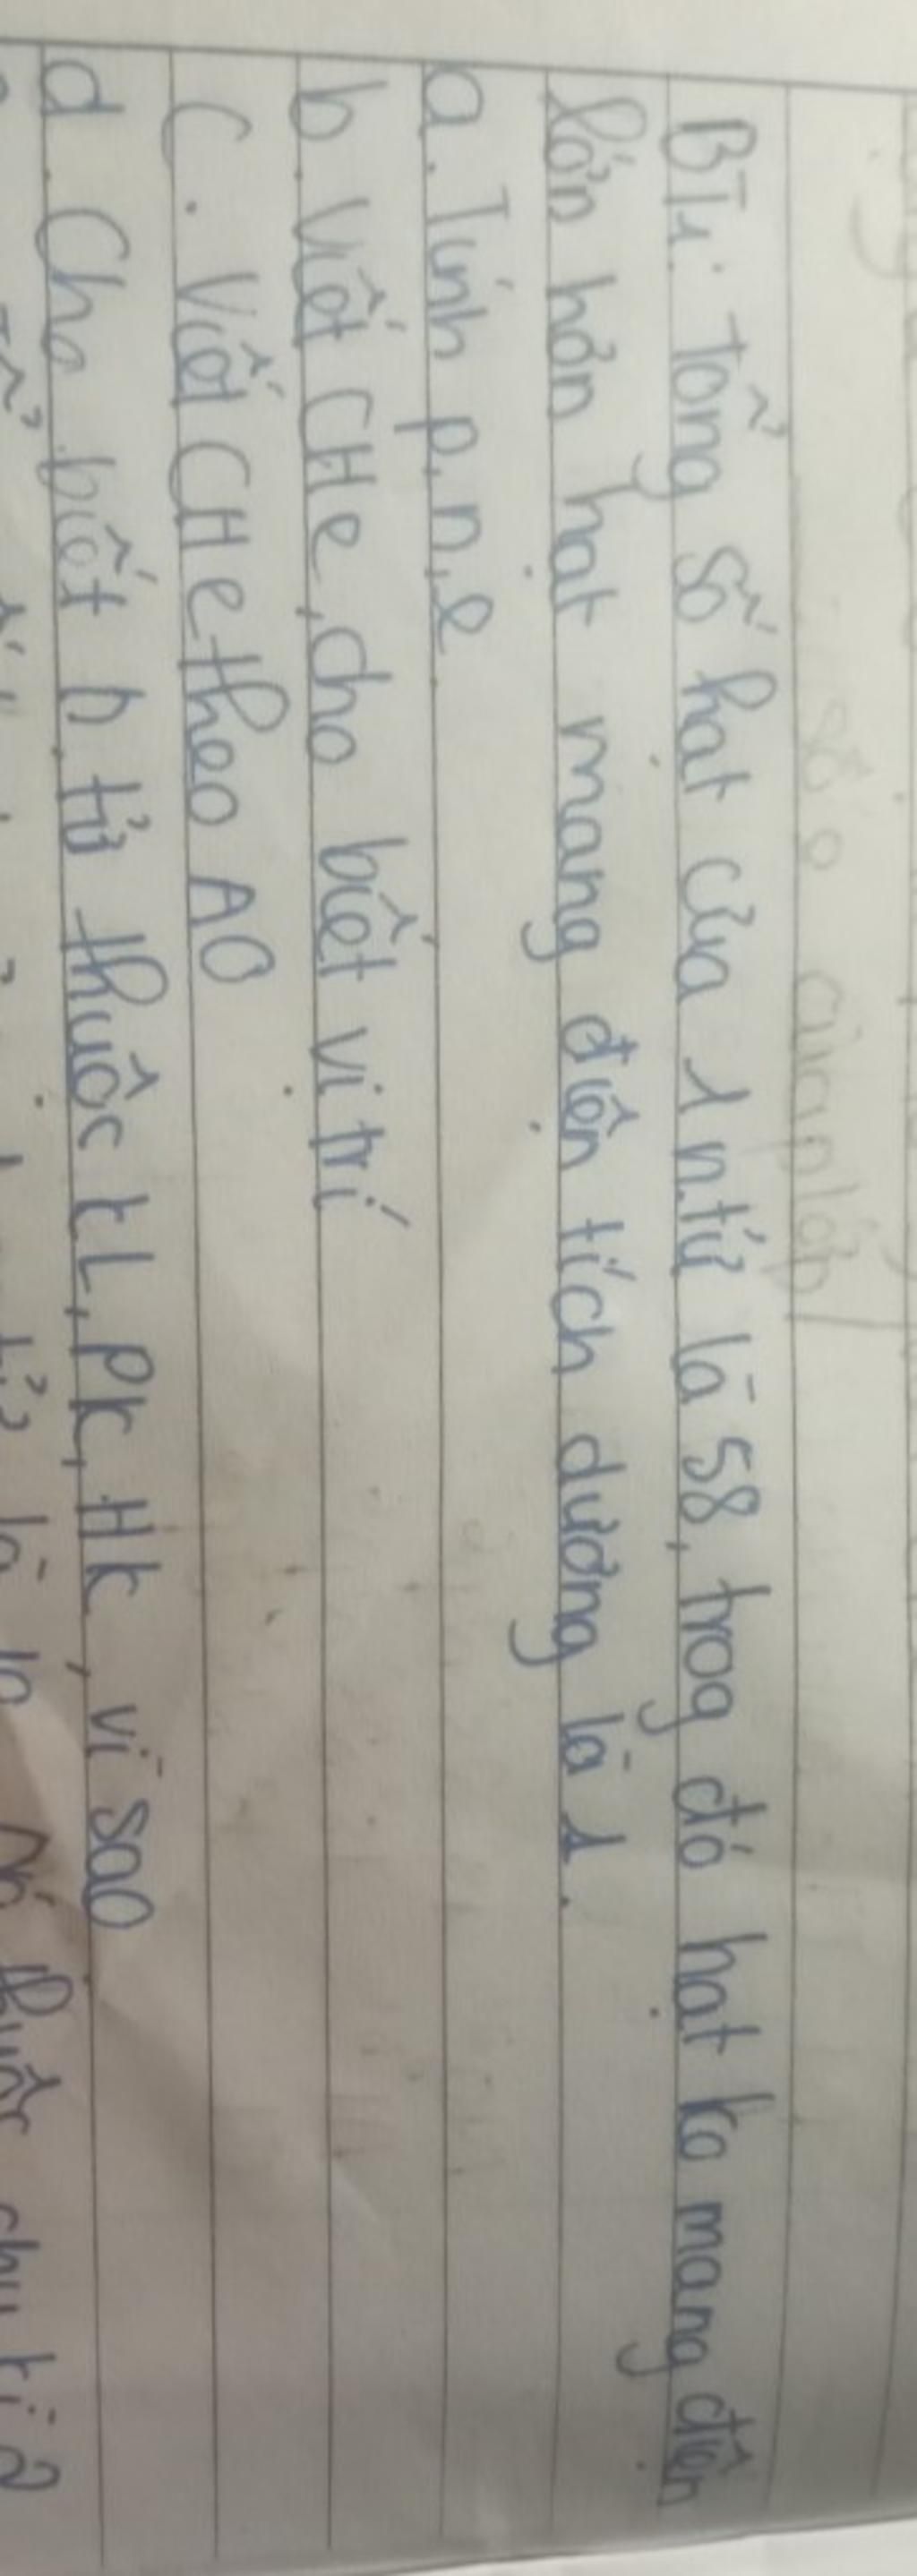 BT1: Tổng số hạt của 1 n.tử là 58, trog đó hạt ko mang điện
lớn hơn hạt mang điện tích dương là 1.
a. Tính p, n, e
b. Viết CHe, cho biết vị trí
C. Viết CHe theo AO
d. Cho biết n.tử thuộc KL, PK, HK, vì sao
thuộc chu kì 2